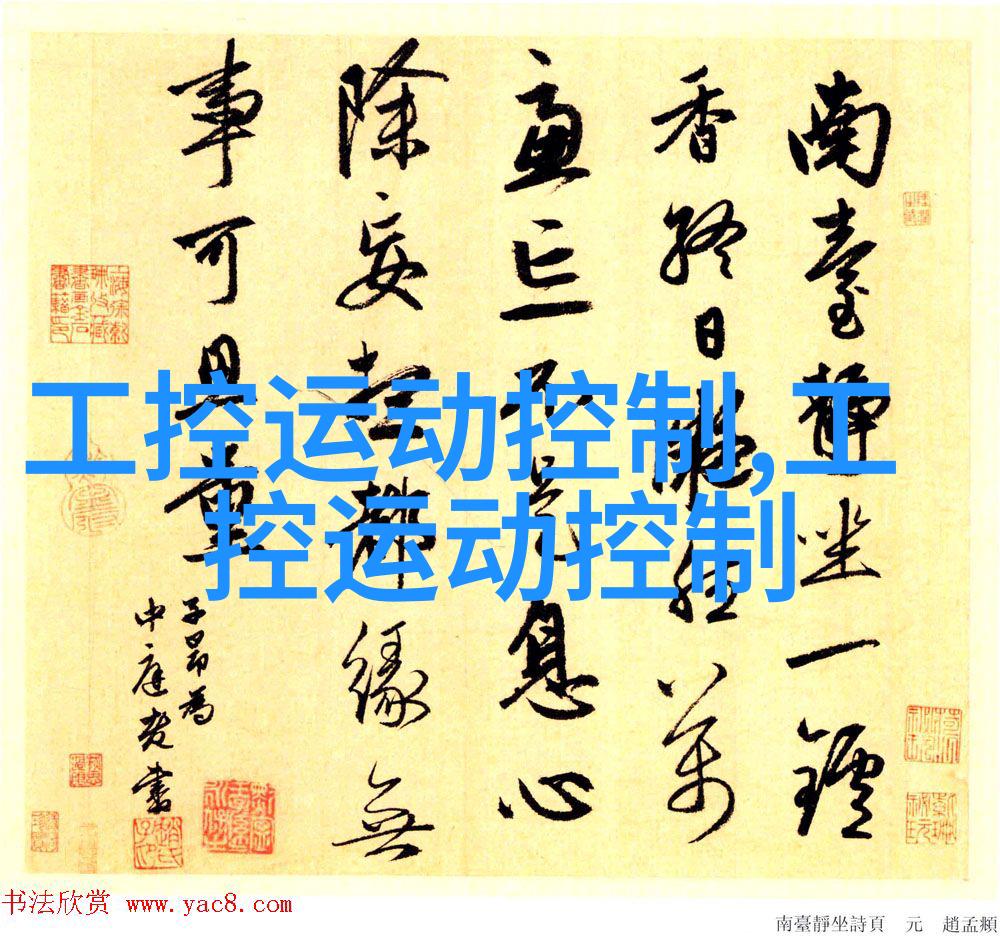 南臺靜坐一鑪
香終日凝然萬
慮亡不是息心
除妄想都緣無
事可思量
子昂為
中庭老書
工控运动控制,工
控运动控制
书法欣赏 www.yac8.com
南臺靜坐詩頁 元 趙孟頫